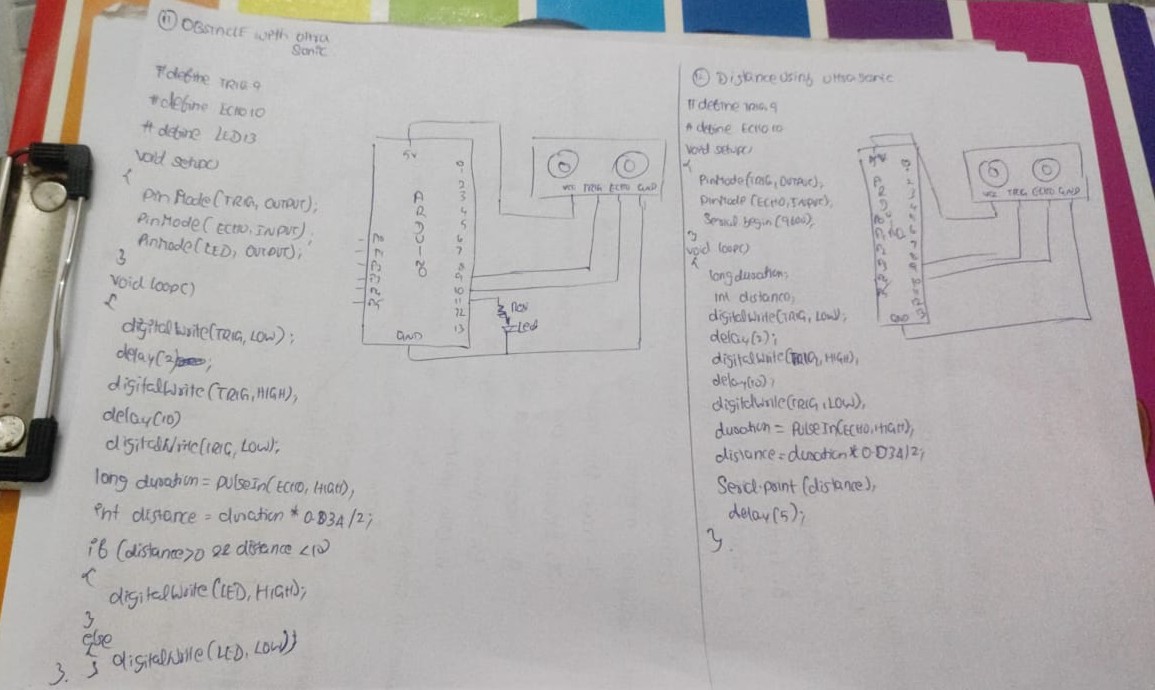 ⑪ OBSTACLE with Ultra
Sonic
#define TRIG 9
#define ECHO 10
#define LED 13
void setup()
{
pinMode(TRIG, OUTPUT);
PinMode(ECHO, INPUT);
PinMode(LED, OUTPUT);
}
void loop()
{
digitalWrite(TRIG, LOW);
delay(2);
digitalWrite(TRIG, HIGH),
delay(10)
digitalWrite(TRIG, LOW);
long duration = pulseIn(ECHO, HIGH),
int distance = duration * 0.034/2;
if (distance>0 && distance <10
{
digitalWrite(LED, HIGH);
}
else
{ digitalWrite(LED, LOW)}
}. }
5V
ARDUINO
0
1
2
3
4
5
6
7
8
9
10
11
12
13
GND
VCC TRIG ECHO GND
Led
⑫ Distance using ultrasonic
#define TRIG 9
#define ECHO 10
void setup()
{
PinMode(TRIG, OUTPUT),
pinMode(ECHO, INPUT),
Serial.begin(9600),
}
void loop()
{
long duration;
int distance;
digitalWrite(TRIG, LOW);
delay(2);
digitalWrite(TRIG, HIGH),
delay(10);
digitalWrite(TRIG, LOW),
duration = PulseIn(ECHO, HIGH),
distance = duration * 0.034/2;
Serial.print(distance),
delay(5);
}.
GND
VCC TRIG ECHO GND